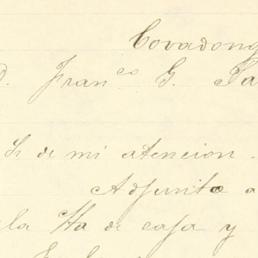 Covadong
D. Fran<sup>co</sup> G.
de mi atencion.
Adjunto a
la Ha de casa y